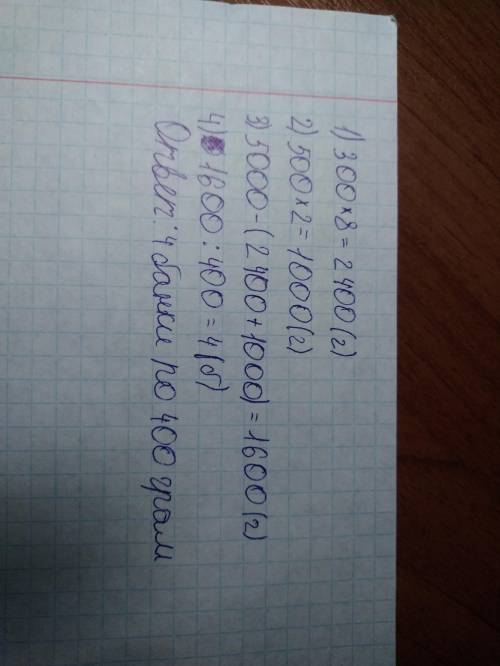 1) 300×8=2400(г)
2) 500×2=1000(г)
3) 5000-(2400+1000)=1600(г)
4) 1600:400=4(б)
Ответ: 4 банки по 400 грам